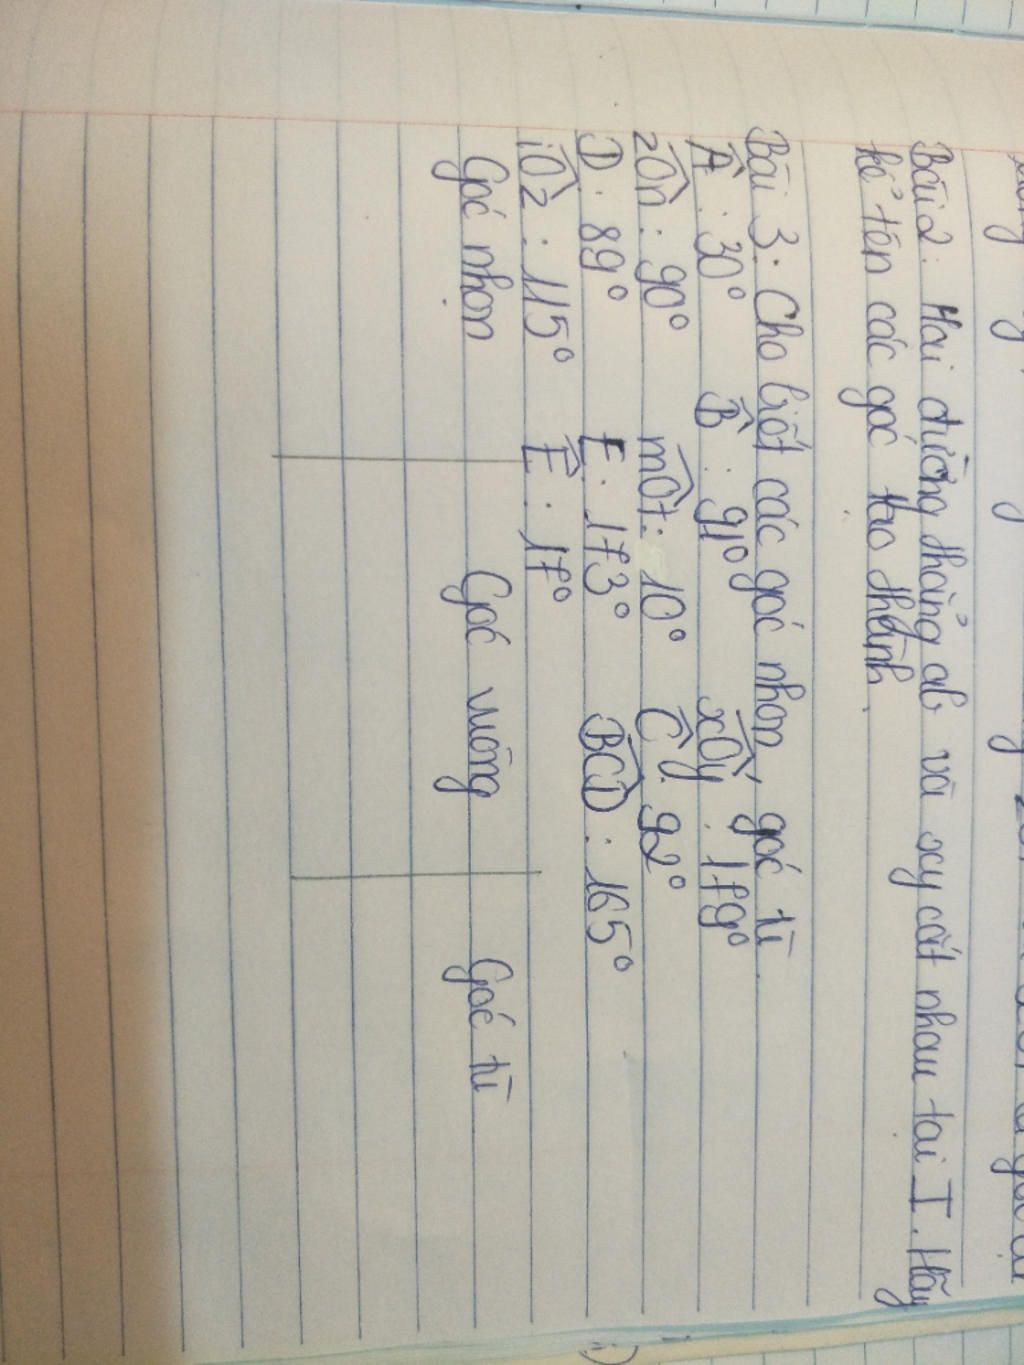 Bài 2: Hai đường thẳng ab và xy cắt nhau tại I. Hãy
kể tên các góc tạo thành.
Bài 3. Cho biết các góc nhọn, góc tù.
Â: 30° B̂: 91° xÔy: 179°
zÔn: 90° mÔt: 10° Ĉ: 92°
D: 89° E: 173° BCD: 165°
iÔz: 115° Ê: 17°
Góc nhọn Góc vuông Góc tù